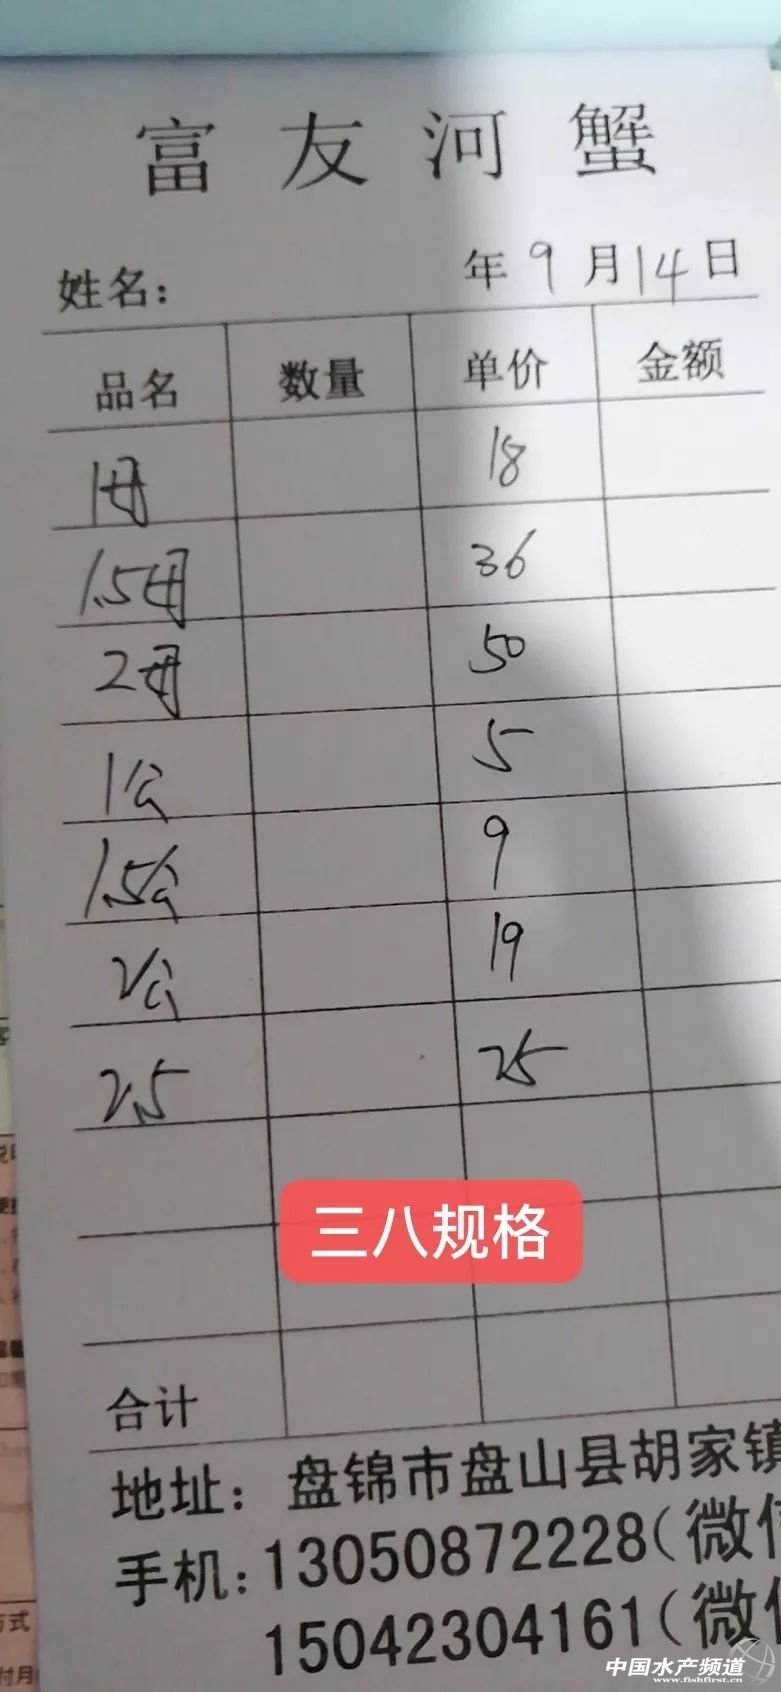 富友河蟹
姓名： 年 9 月 14 日
品名 数量 单价 金额
1母 18
1.5母 36
2母 50
1公 5
1.5公 9
2公 19
2.5 25
三八规格
合计
地址：盘锦市盘山县胡家镇
手机：13050872228（微信
15042304161（微信
中国水产频道
www.fishfirst.cn
方式
付月